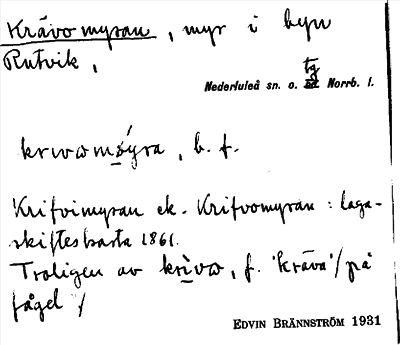 Krävomyran, myr i byn
Rutvik,
Nederluleå sn. o. tg Norrb. l.
krɯwomøyra, b. f.
Krifvimyran ek. Krifvomyran: laga-
skifteskarta 1861.
Troligen av krivω, f. 'kräva' / på
fågel /
EDVIN BRÄNNSTRÖM 1931